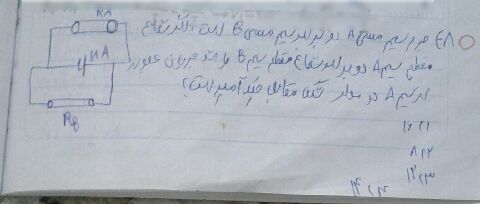 RA
۴۸ جرم سیم مسی A دو برابر سیم مسی B است اگر شعاع
۱۸A
مقطع سیم A دو برابر شعاع مقطع سیم B باشد جریان عبوری
از سیم A در مدار شکل مقابل چند آمپر است؟
RB
۱) ۱۶
۲) ۸
۳) ۱۲
۴) ۱۴